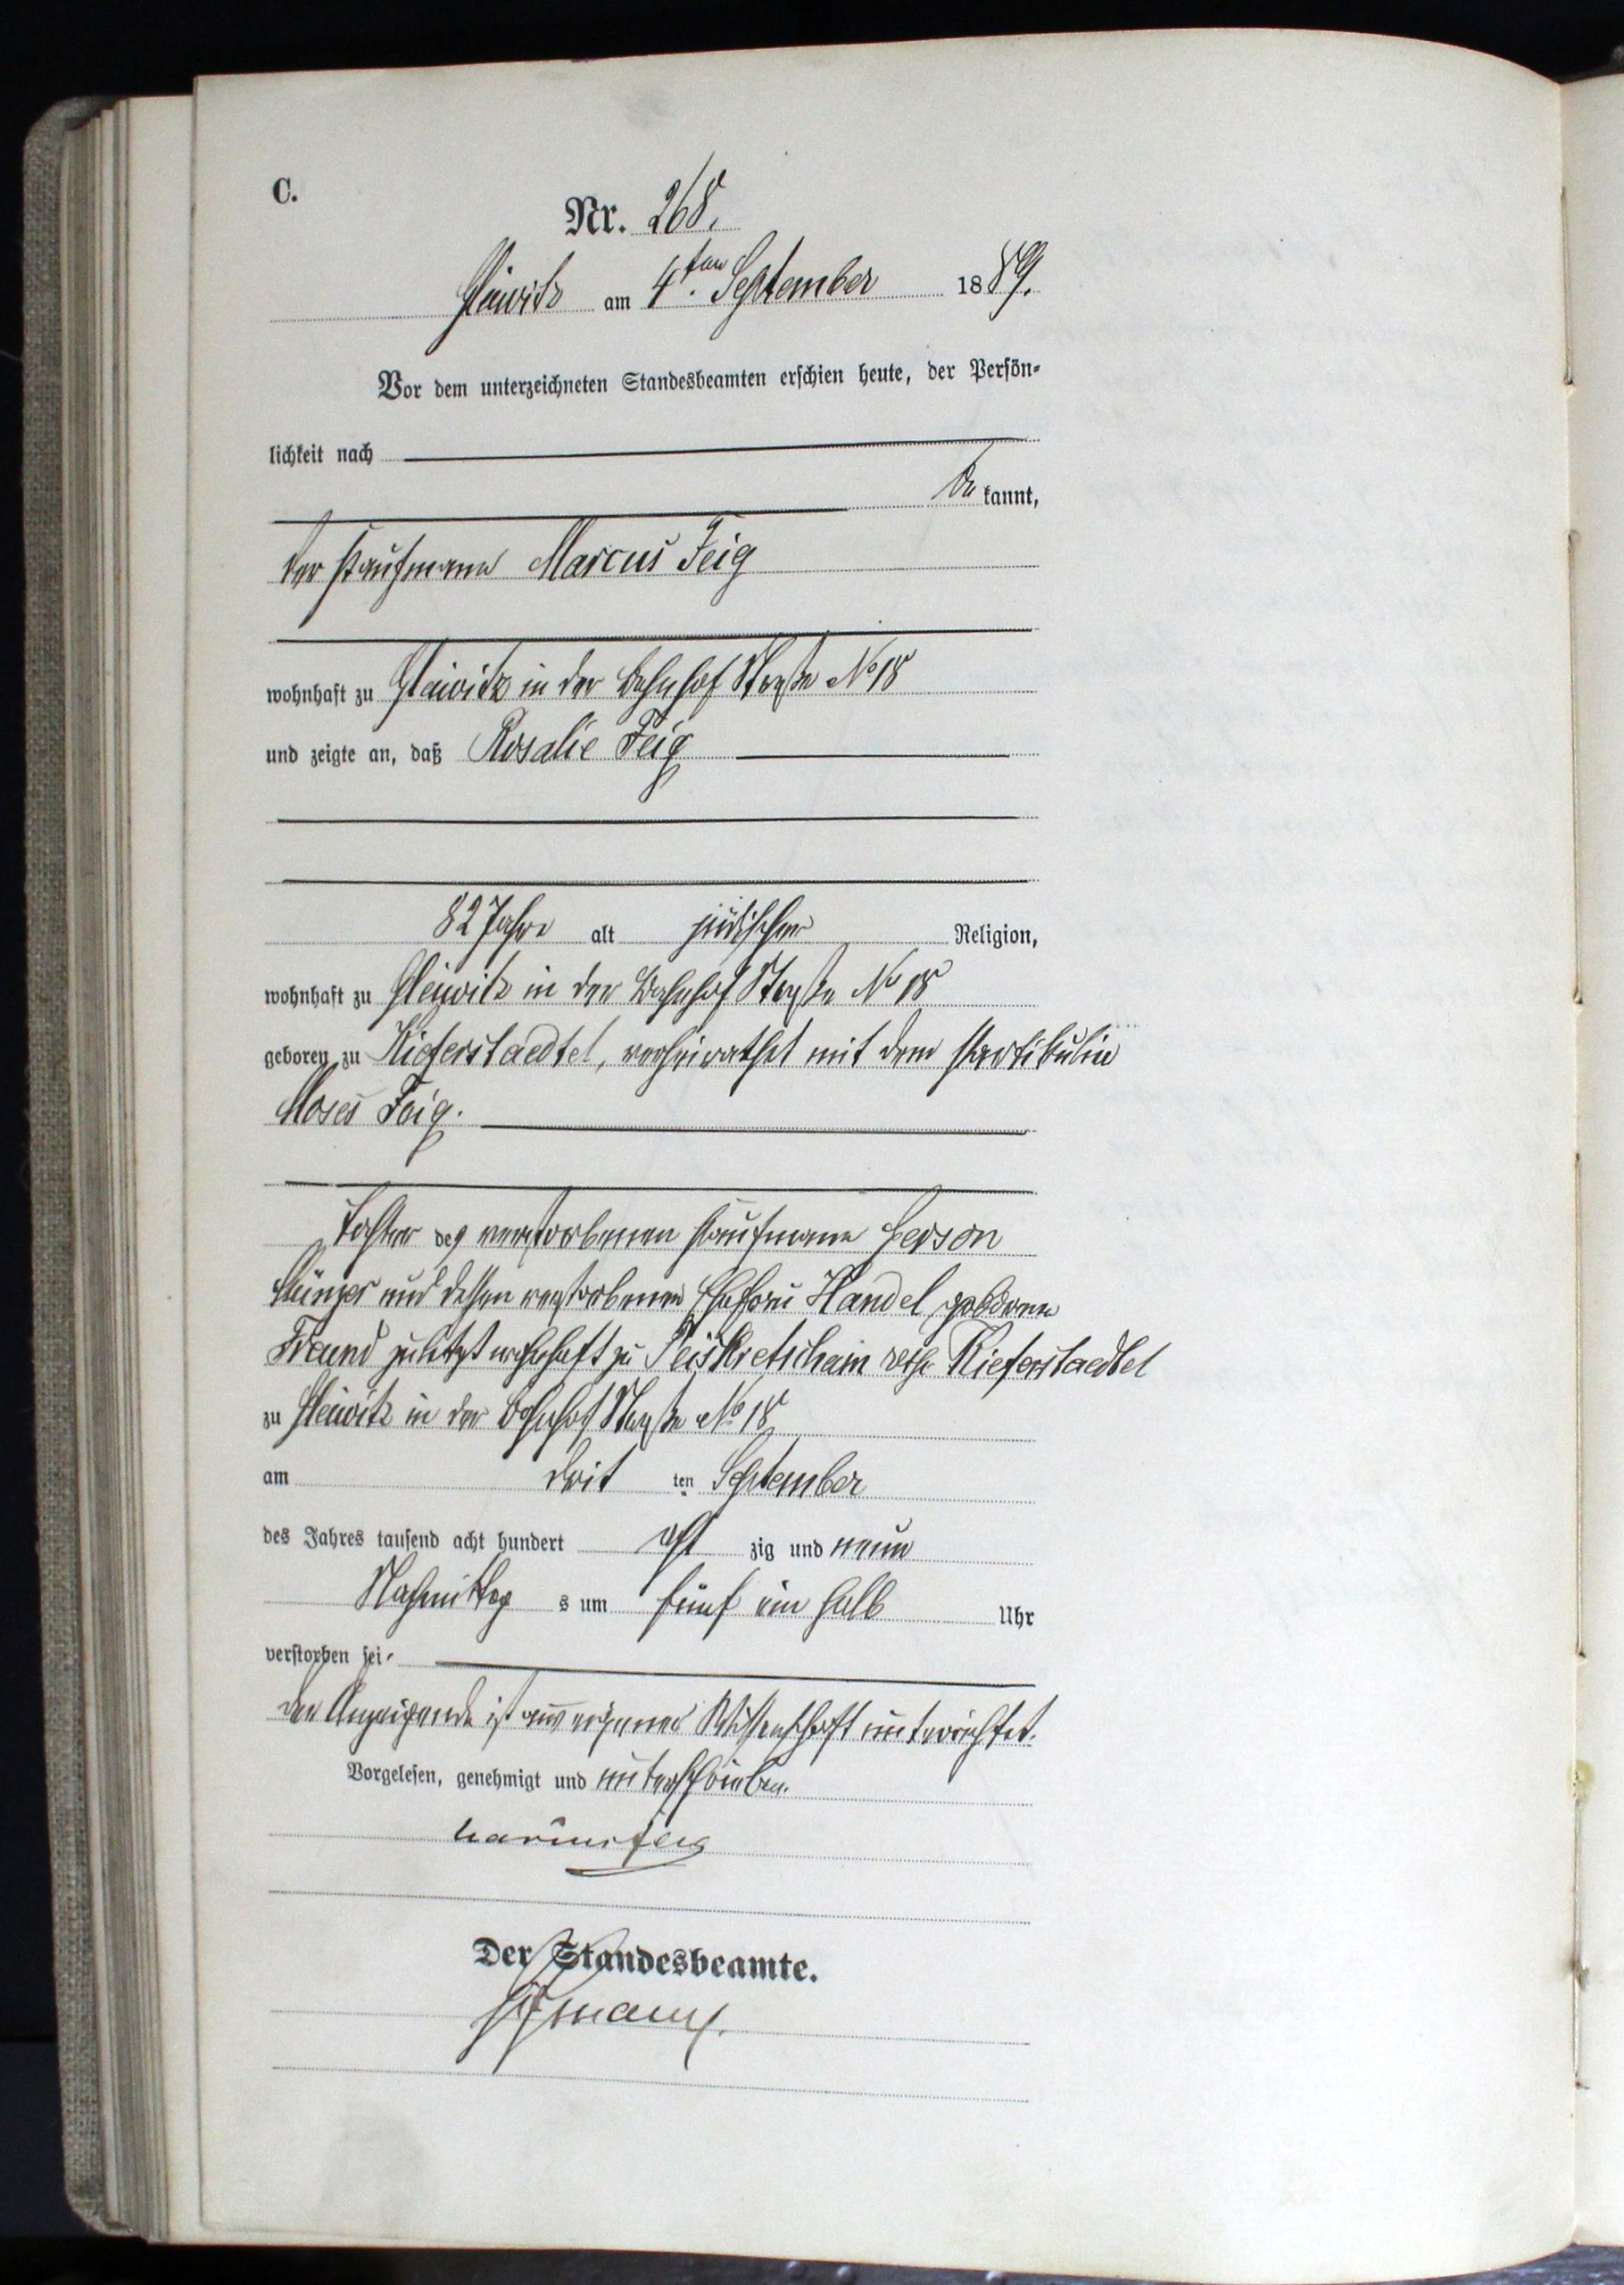 C.
Nr. 268.
Gleiwitz am 4ten September 1889.
Vor dem unterzeichneten Standesbeamten erschien heute, der Persön-
lichkeit nach
be kannt,
der Kaufmann Marcus Feig
wohnhaft zu Gleiwitz in der Bahnhof Straße No 18
und zeigte an, daß Rosalie Feig
82 Jahre alt jüdischer Religion,
wohnhaft zu Gleiwitz in der Bahnhof Straße No 18
geboren zu Kieferstaedtel, verheirathet mit dem Partikulier
Moses Feig.
Tochter des verstorbenen Kaufmann Gerson
und dessen verstorbenen Ehefrau Handel geborene
Freund zuletzt wohnhaft zu Peiskretscham resp. Kieferstaedtel
zu Gleiwitz in der Bahnhof Straße No 18
am drit ten September
des Jahres tausend acht hundert acht zig und neun
Nachmittag s um fünf ein halb Uhr
verstorben sei.
der Anzeigende ist aus eigener Wissenschaft unterrichtet.
Vorgelesen, genehmigt und unterschrieben.
Marcus Feig
Der Standesbeamte.